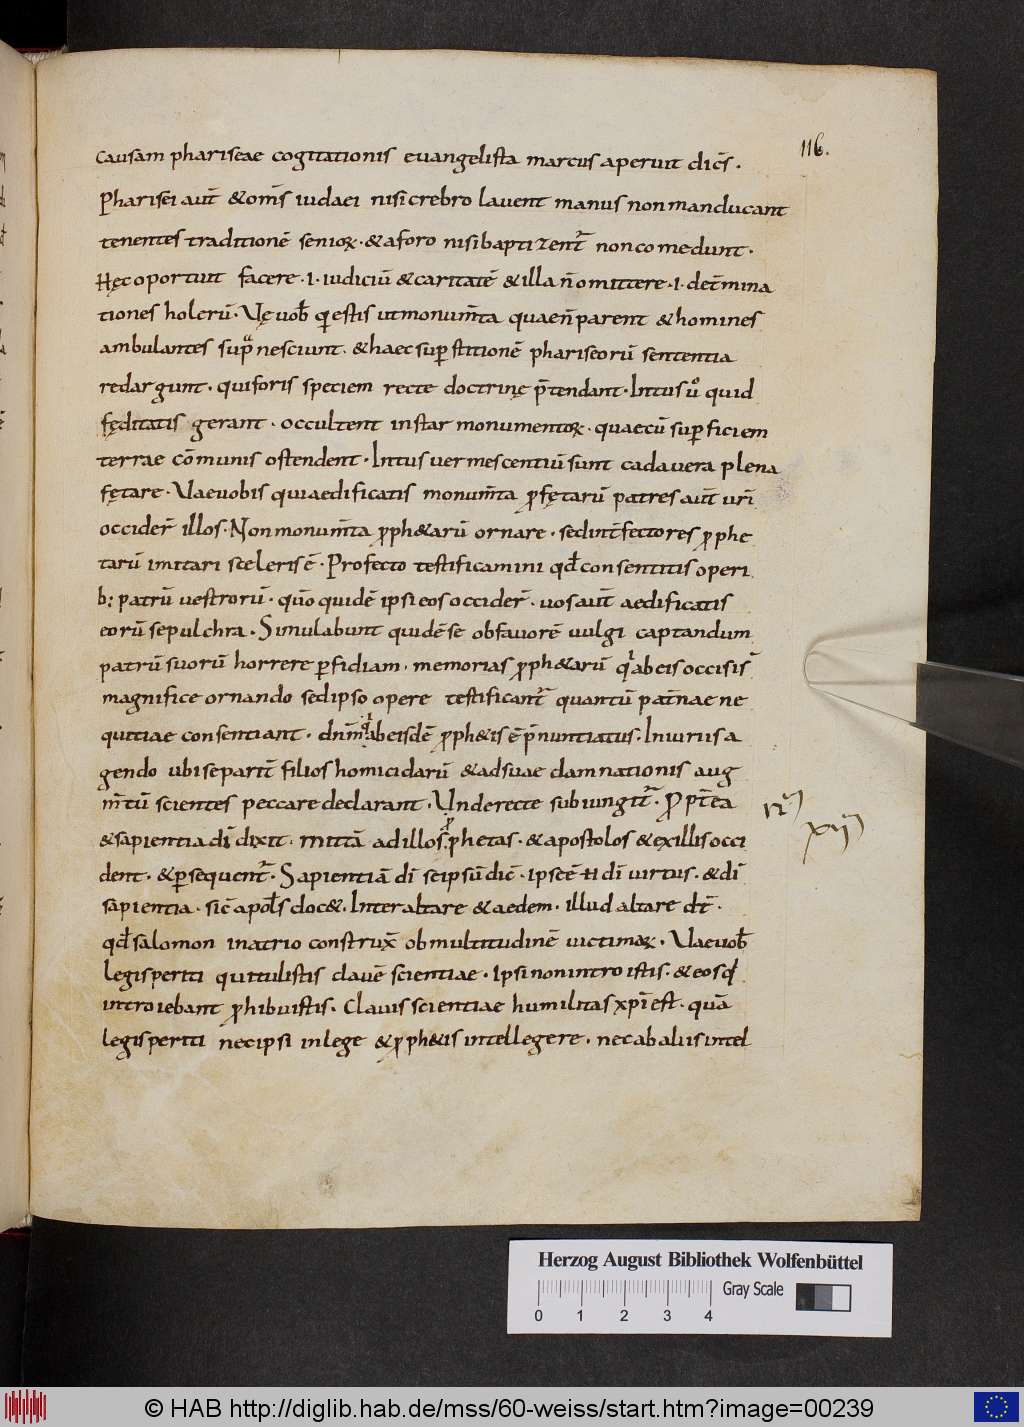 116.
causam phariseae cogitationis euangelista marcus aperuit dic̄s.
Pharisei aut̄ &om̄s iudaei nisi crebro lauent manus non manducant
tenentes traditionē senioꝝ. &a foro nisi baptizent̄ non comedunt.
Hęc oportuit facere .i. iudiciū & caritatē & illa n̄ omittere .i. det̄mina
tiones holerū. Vę uob̄ qͥ estis ut monum̄ta quae n̄ parent & homines
ambulantes supͣ nesciunt. & haec superstitionē phariseorū sententia
redargunt. qui foris speciem recte doctrinę p̄tendant. Intus ūͦ quid
fęditatis gerant. occultent instar monumentoꝝ. quae cū superficiem
terrae cōmunis ostendent. Intus uermescentiū sunt cadauera plena
fętare. Vae uobis qui aedificatis monum̄ta ꝓfętarū patres aut̄ ur̄i
occider̄ illos. Non monum̄ta ꝓph&arū ornare. sed int̄fectores ꝓphe
tarū imitari sceleris ē. Profecto testificamini qd̄ consentitis operi
b; patrū uestrorū. quō quidē ipsi eos occider̄. uos aut̄ aedificatis
eorū sepulchra. Simulabunt quidē se ob fauorē uulgi captandum
patrū suorū horrere ꝑfidiam. memorias ꝓph&arū qͥ ab eis occisi s̄
magnifice ornando sed ipso opere testificant̄ quantū pat̄nae ne
quitiae consentiant. dn̄m qͥ ab eisdē ꝓph&is ē p̄nuntiatus. Iniuriis a
gendo ubi se part̄ filios homicidarū & ad suae damnationis aug
m̄tū scientes peccare declarant. Unde recte subiungit̄. Propt̄ea
& sapientia dī dixit. mittā ad illos ꝓphetas. & apostolos & ex illis occi
dent. & ꝑsequent̄. Sapientiā dī seipsū dic̄. ipse ē n̄ dī uirtus. & dī
sapientia. sic̄ apoł̄s doc&. Inter altare & aedem. illud altare dt̄.
qd̄ salomon in atrio construx̄ ob multitudinē uictimaꝝ. Vae uob̄
legisperiti qui tulistis clauē scientiae. Ipsi non introistis. & eos qͥ
introiebant ꝓhibuistis. Clauis scientiae humilitas xp̄i est. quā
legisperiti nec ipsi in lege & ꝓph&is intellegere. nec ab aliis intel
Herzog August Bibliothek Wolfenbüttel
Gray Scale
0 1 2 3 4
© HAB http://diglib.hab.de/mss/60-weiss/start.htm?image=00239